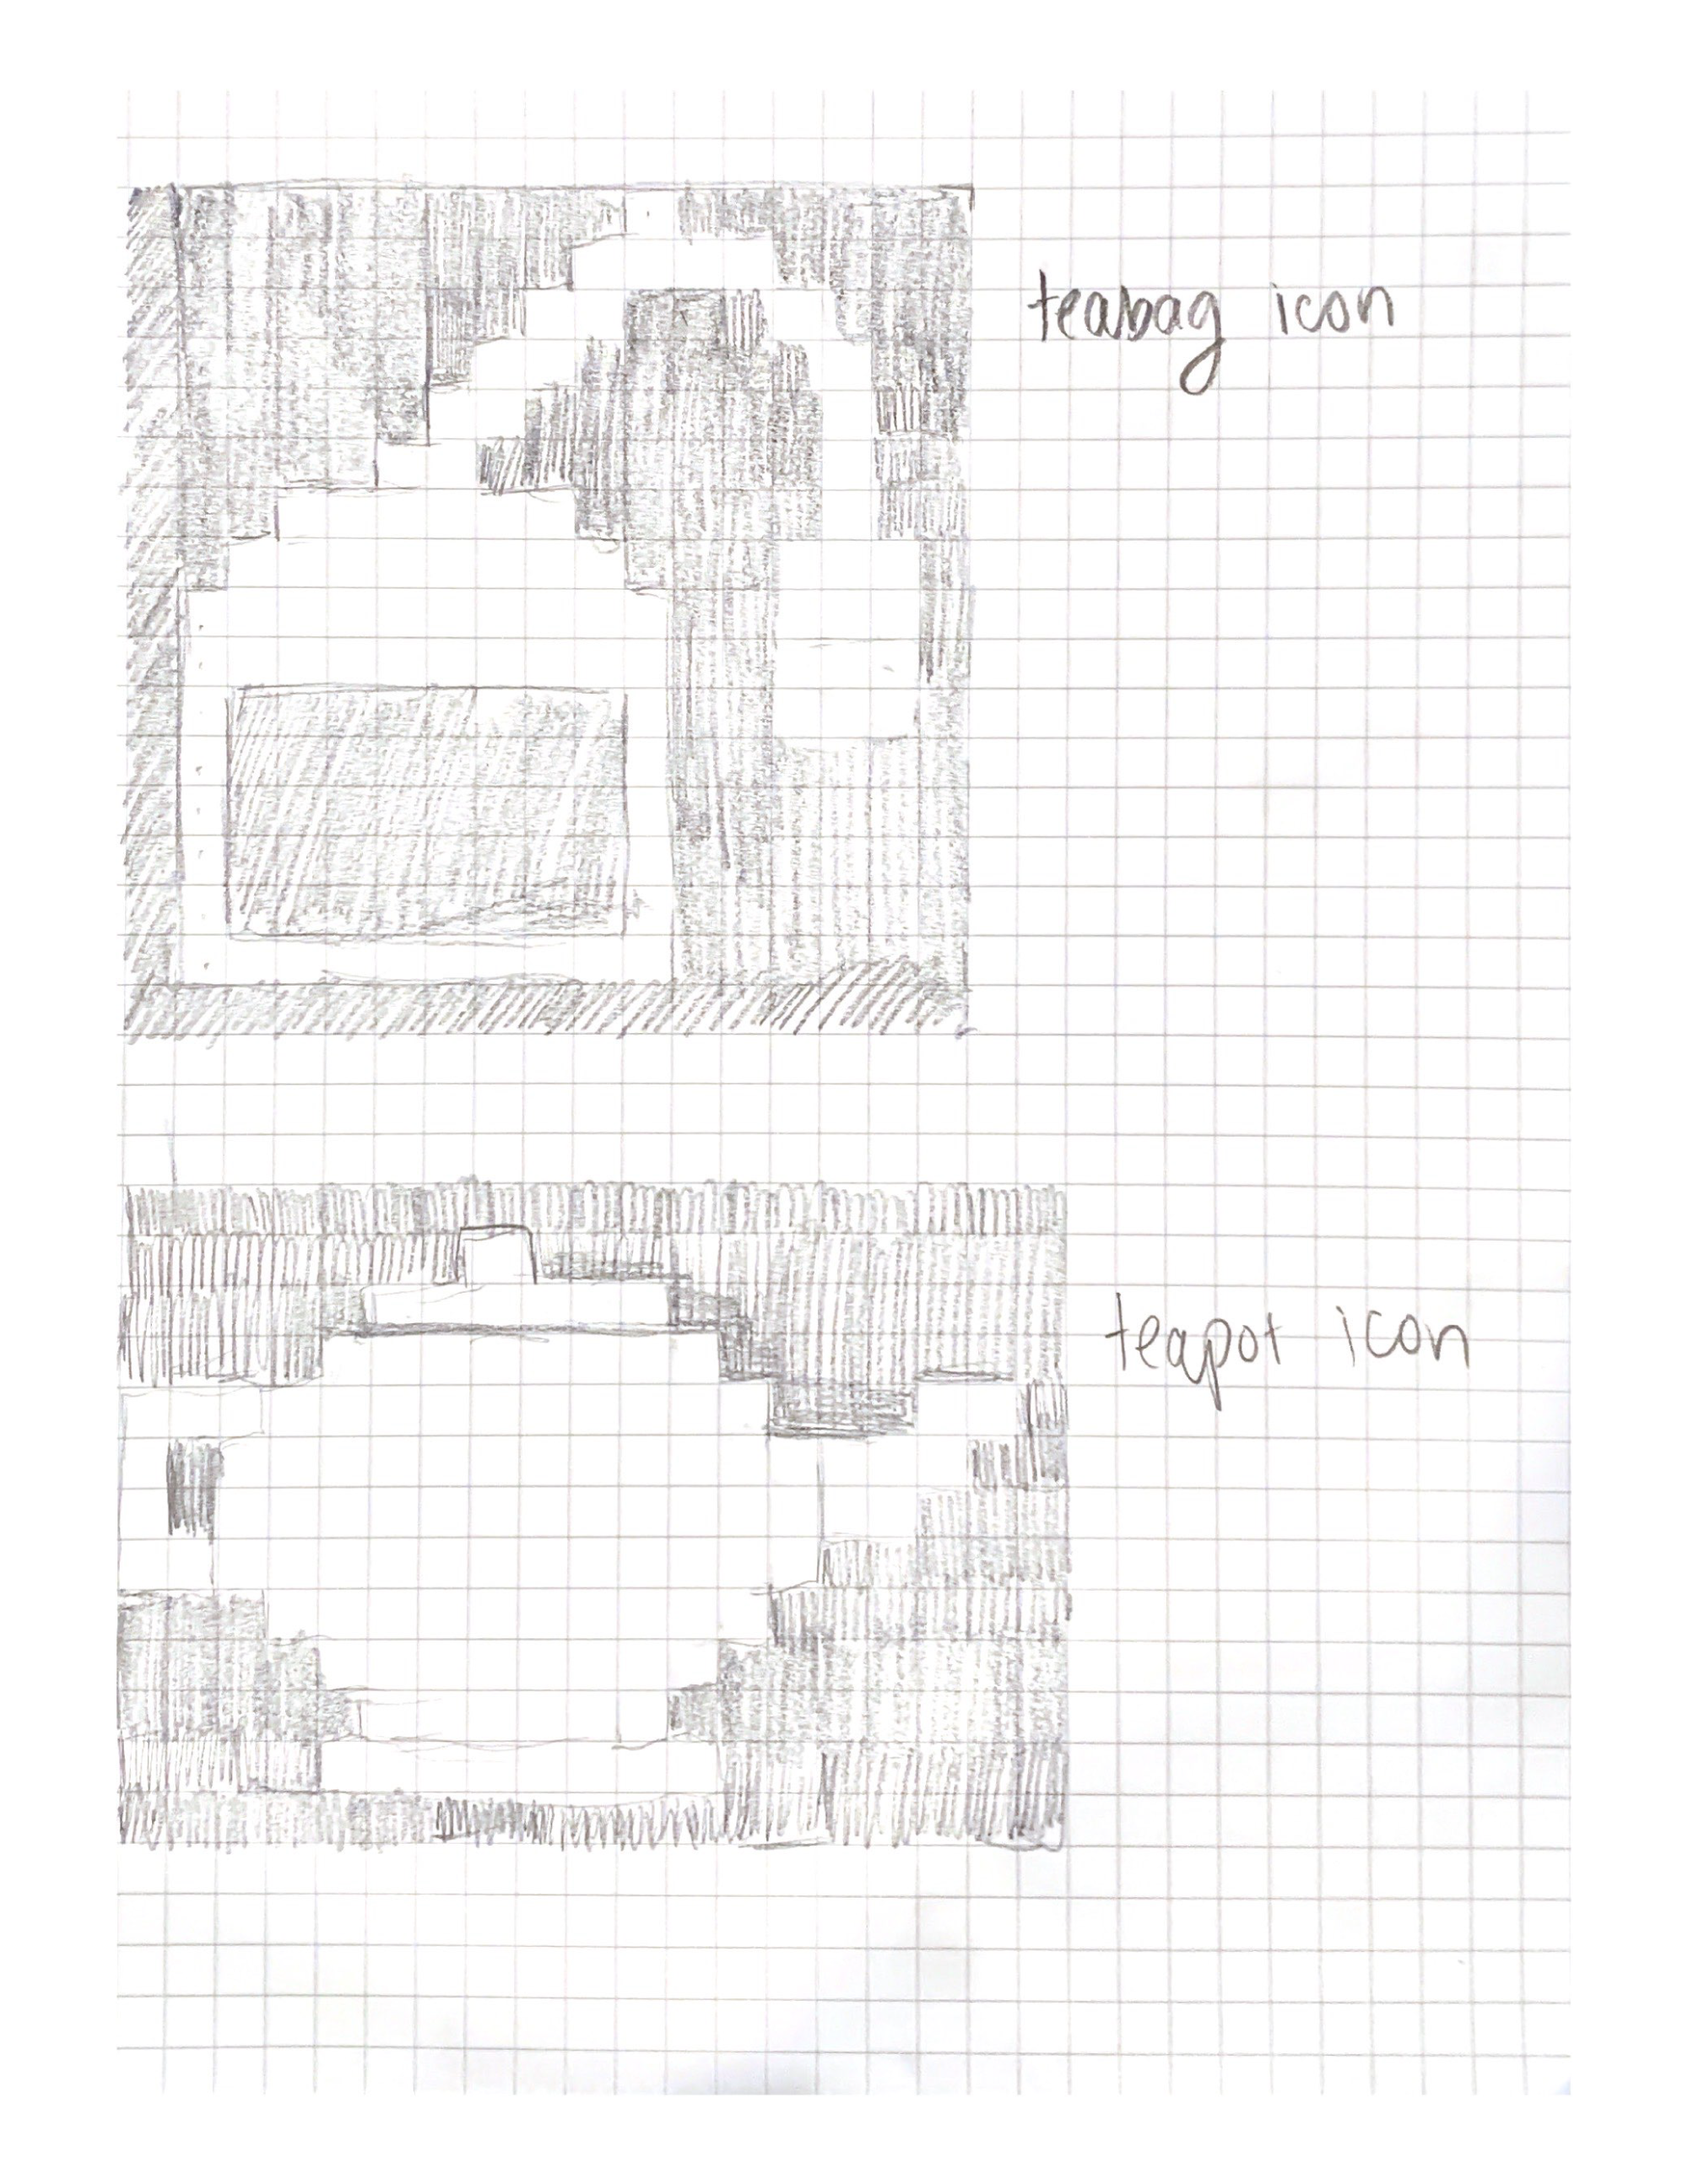 teabag icon
teapot icon